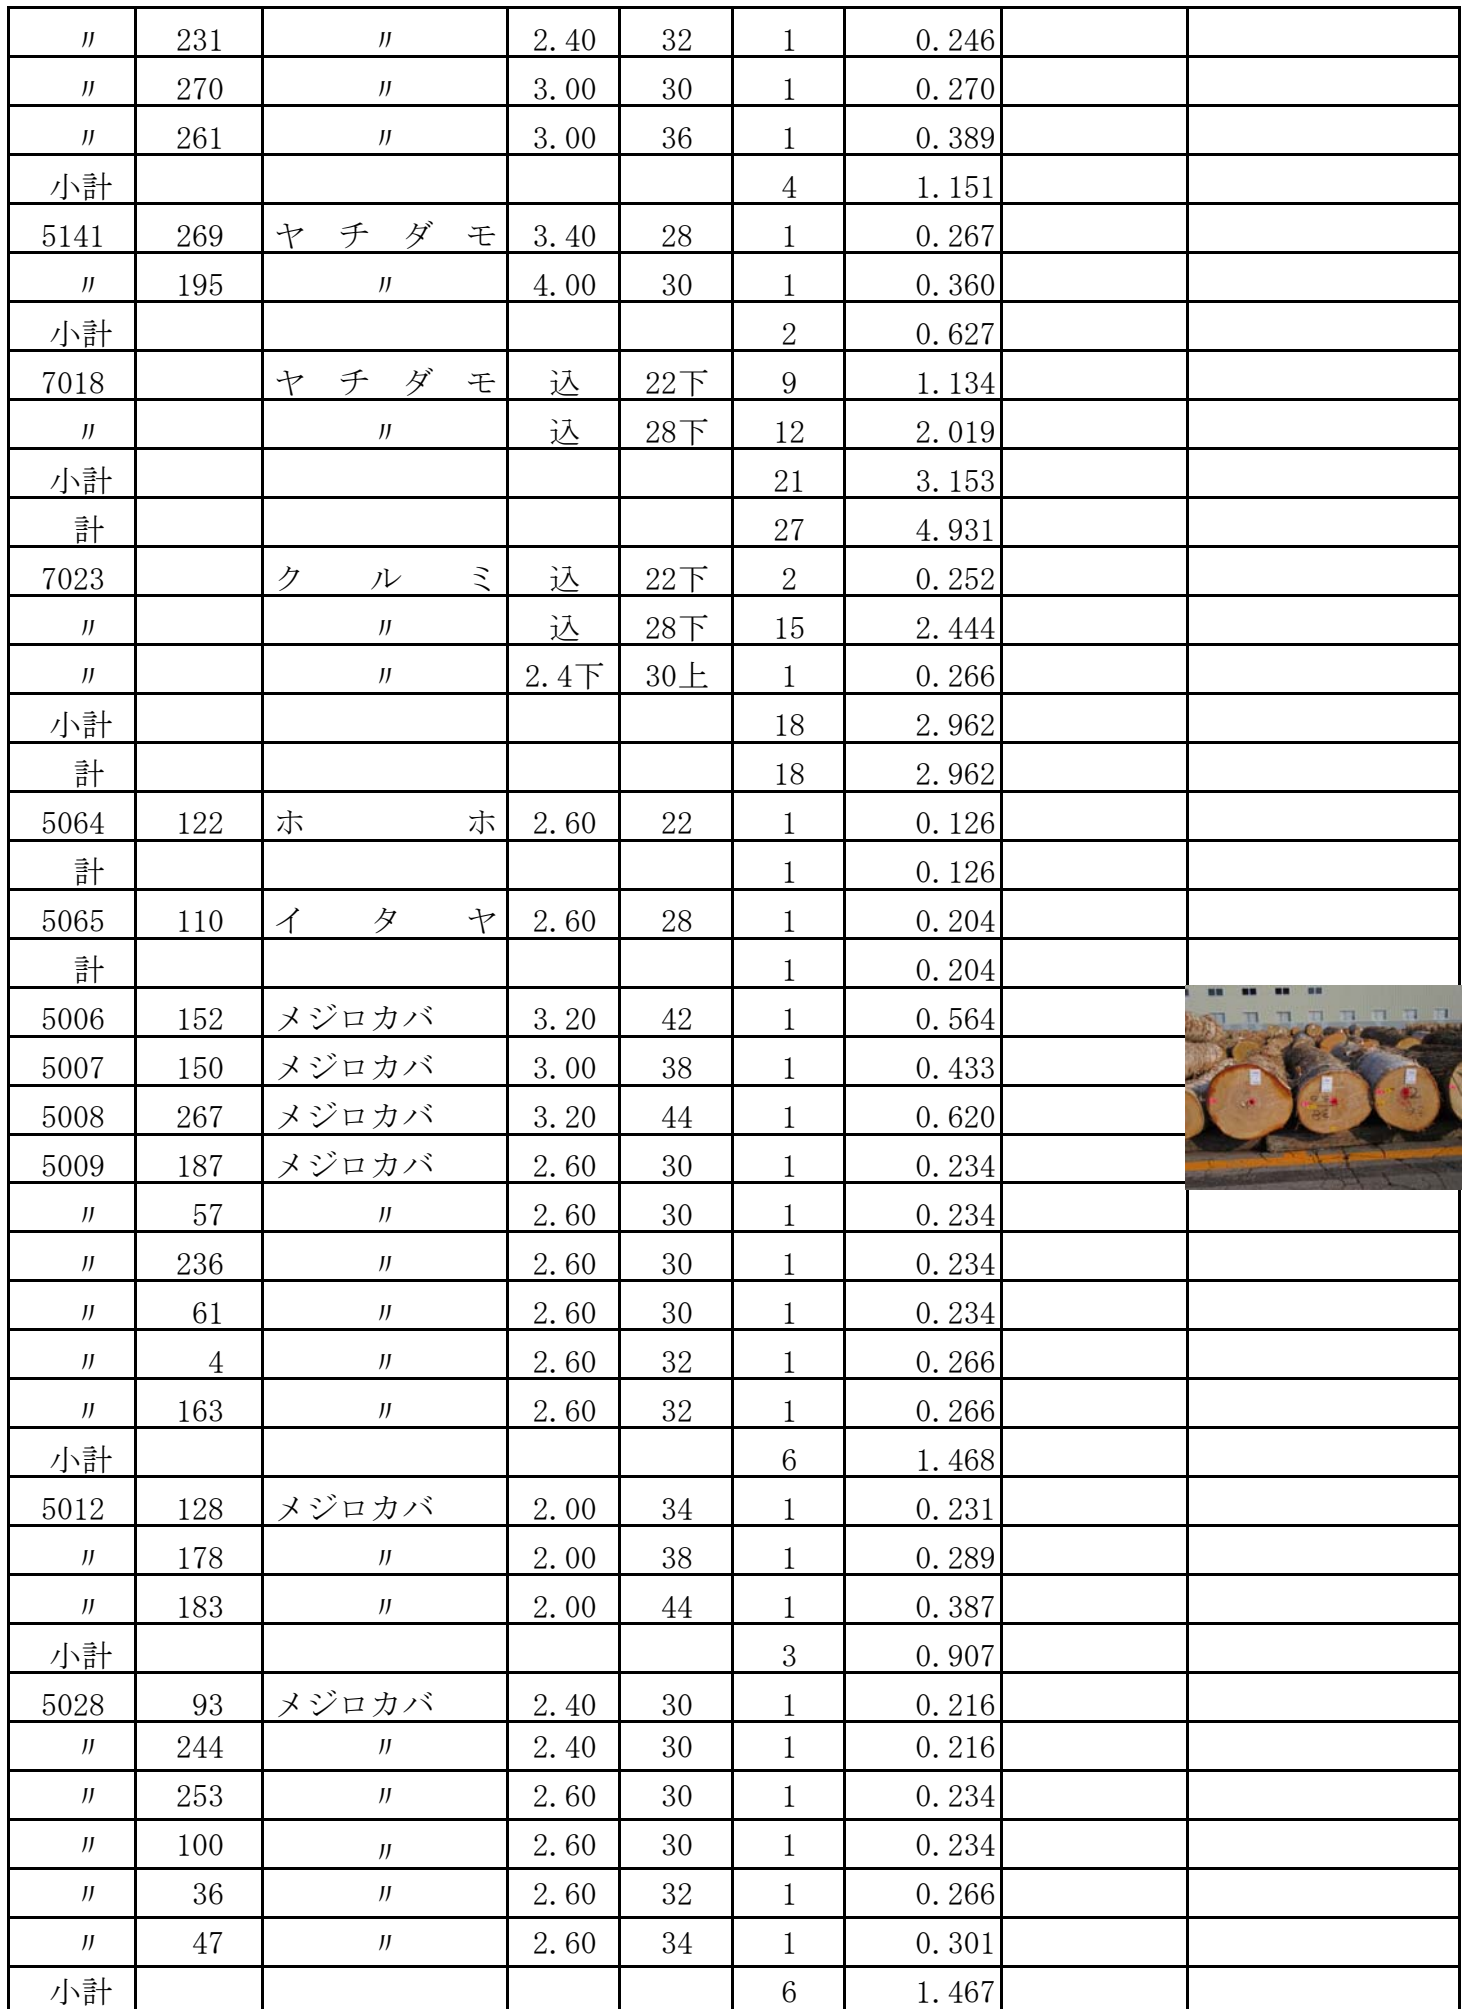 〃 231 〃 2.40 32 1 0.246
〃 270 〃 3.00 30 1 0.270
〃 261 〃 3.00 36 1 0.389
小計 4 1.151
5141 269 ヤチダモ 3.40 28 1 0.267
〃 195 〃 4.00 30 1 0.360
小計 2 0.627
7018 ヤチダモ 込 22下 9 1.134
〃 〃 込 28下 12 2.019
小計 21 3.153
計 27 4.931
7023 クルミ 込 22下 2 0.252
〃 〃 込 28下 15 2.444
〃 〃 2.4下 30上 1 0.266
小計 18 2.962
計 18 2.962
5064 122 ホホ 2.60 22 1 0.126
計 1 0.126
5065 110 イタヤ 2.60 28 1 0.204
計 1 0.204
5006 152 メジロカバ 3.20 42 1 0.564
5007 150 メジロカバ 3.00 38 1 0.433
5008 267 メジロカバ 3.20 44 1 0.620
5009 187 メジロカバ 2.60 30 1 0.234
〃 57 〃 2.60 30 1 0.234
〃 236 〃 2.60 30 1 0.234
〃 61 〃 2.60 30 1 0.234
〃 4 〃 2.60 32 1 0.266
〃 163 〃 2.60 32 1 0.266
小計 6 1.468
5012 128 メジロカバ 2.00 34 1 0.231
〃 178 〃 2.00 38 1 0.289
〃 183 〃 2.00 44 1 0.387
小計 3 0.907
5028 93 メジロカバ 2.40 30 1 0.216
〃 244 〃 2.40 30 1 0.216
〃 253 〃 2.60 30 1 0.234
〃 100 〃 2.60 30 1 0.234
〃 36 〃 2.60 32 1 0.266
〃 47 〃 2.60 34 1 0.301
小計 6 1.467